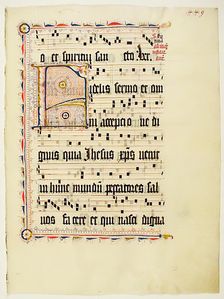 o et spiritui san cto
idelis sermo et om
ni acceptio ne di
gnus quia Jhesus xps venit
in hunc mundum peccatores sal
uos facere et qui nasci digna